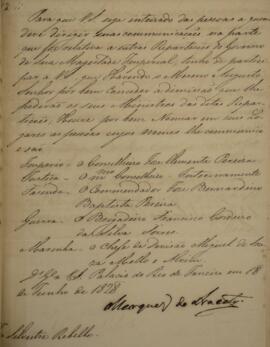 Para que V.S. seja inteirado das pessoas a quem
deve dirigir suas communicações na parte
que for relativa a outras Repartições do Governo
de Sua Magestade Imperial, tenho de partici-
par a V.S. que Havendo o Mesmo Augusto
Senhor por bem Conceder a demissão que Lhe
pedirão os seus Ministros das ditas Repar-
tições, Houve por bem Nomear em seus Lu-
gares as pessoas cujos nomes lhe communico
e são
Imperio - O Conselheiro Jozé Clemente Pereira
Justiça - O mmo Conselheiro - Interinamente
Fazenda - O Commendador Jozé Bernardino
Baptista Pereira
Guerra - O Brigadeiro Francisco Cordeiro
da Silva Torres
Marinha - O Chefe de Divisão Miguel de Sou-
za Mello e Alvim
Palacio do Rio de Janeiro em 18
de Junho de 1828
Marquez do Aracaty
Silvestre Rebello